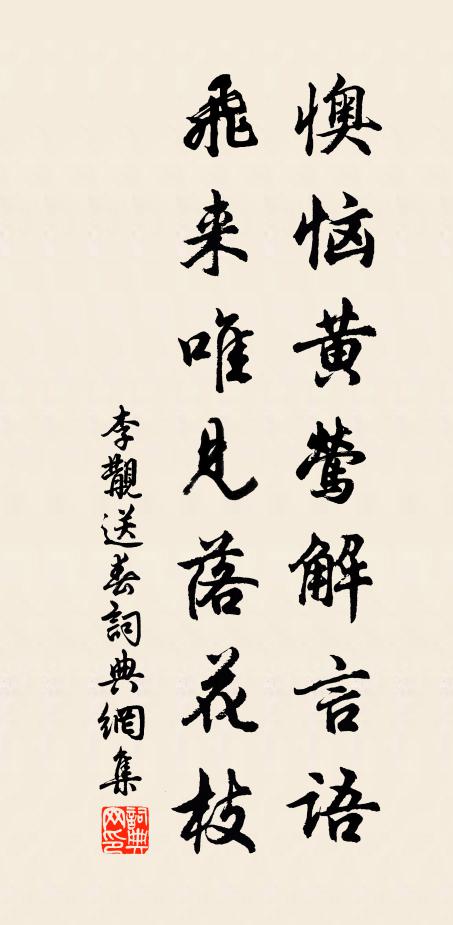 懊恼黄莺解言语
飛来唯见落花枝
李觀送春詞典網集
詞典
网印